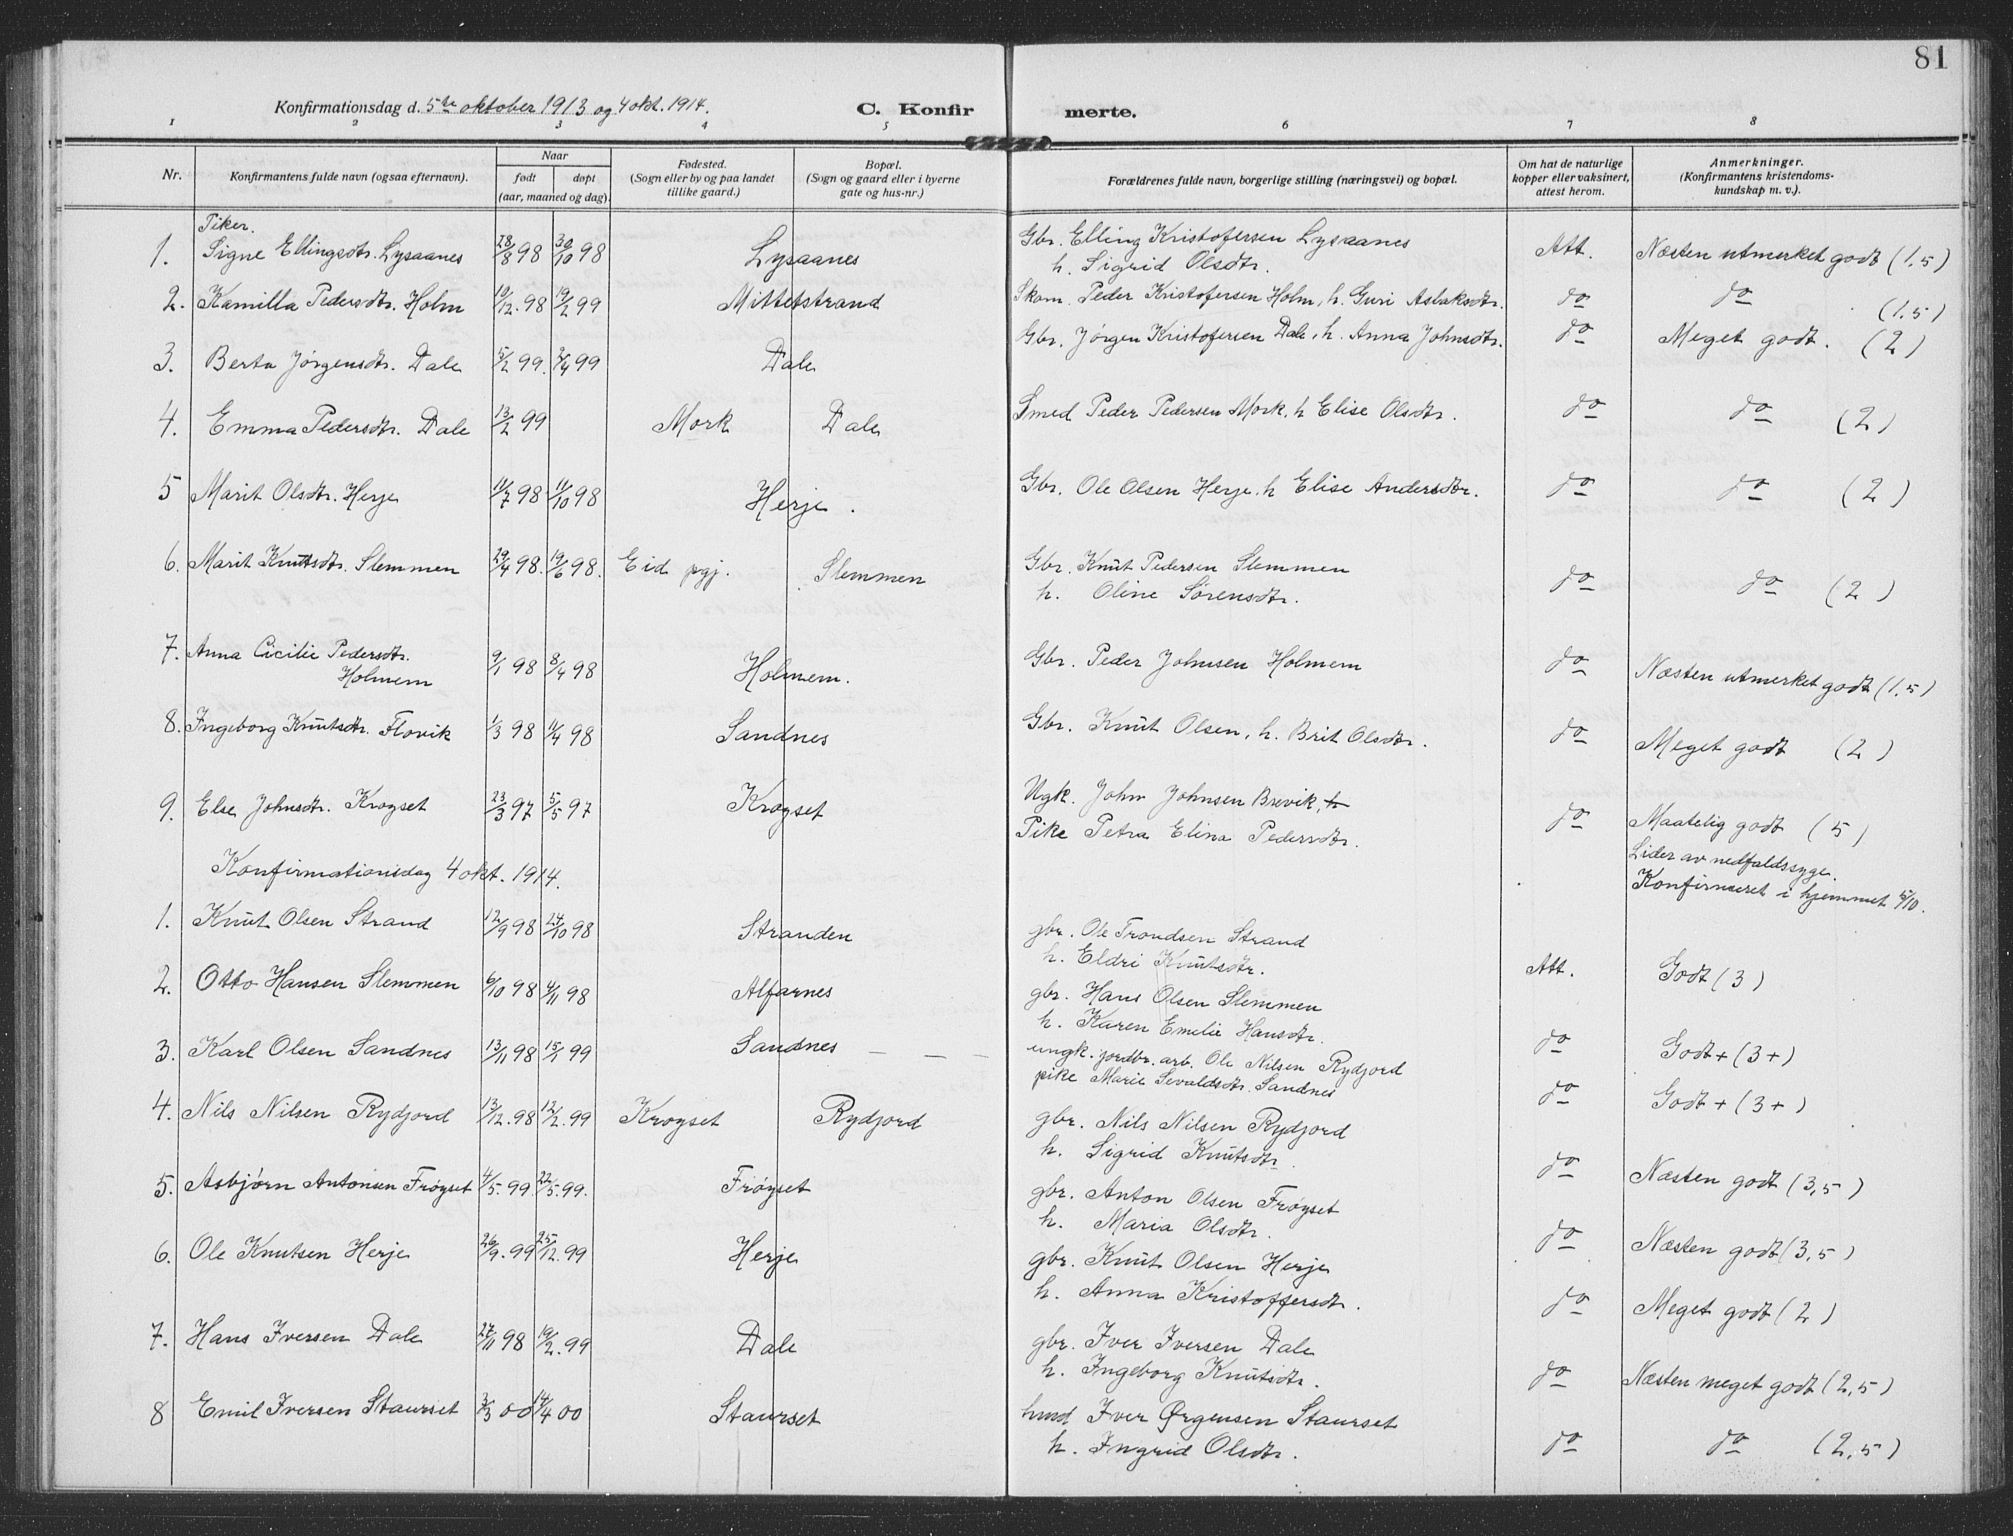 81
Konfirmationsdag d. 5te oktober 1913 og 4 okt. 1914.
C. Konfirmerte.
1 2 3 4 5 6 7 8
Nr.
Konfirmantens fulde navn (ogsaa efternavn).
Naar
født døpt
(aar, maaned og dag).
Fødested.
(Sogn eller by og paa landet
tillike gaard.)
Bopæl.
(Sogn og gaard eller i byerne
gate og hus-nr.)
Forældrenes fulde navn, borgerlige stilling (næringsvei) og bopæl.
Om hat de naturlige
kopper eller vaksinert,
attest herom.
Anmerkninger.
(Konfirmantens kristendoms-
kundskap m. v.).
Piker.
1. Signe Ellingsdtr. Lysaanes 28/8 98 30/10 98 Lysaanes Gbr. Elling Kristofersen Lysaanes Att. Næsten utmerket godt (1,5)
h. Sigrid Olsdtr.
2. Kamilla Pedersdtr. Holm 10/12. 98 19/2 99 Mittelstrand Skom. Peder Kristofersen Holm, h. Guri Aslaksdtr. do do (1,5)
3. Berta Jørgensdtr. Dale 5/2 99. 2/4 99 Dale Gbr. Jørgen Kristofersen Dale, h. Anna Johnsdtr. do Meget godt. (2)
4. Emma Pedersdtr. Dale 13/2 99 Mork Dale Smed Peder Pedersen Mork, h Elise Olsdtr. do do (2)
5 Marit Olsdtr. Herje 11/7 98 11/10 98 Herje. Gbr. Ole Olsen Herje, h Elise Andersdtr. do do (2)
6. Marit Knutsdtr. Slemmen 29/4 98. 19/6 98. Eid pgj. Slemmen Gbr. Knut Pedersen Slemmen
h. Oline Sørensdtr. do do (2)
7. Anna Cicilie Pedersdtr.
Holmem 9/1 98 8/4 98 Holmem. Gbr. Peder Johnsen Holmem do Næsten utmerket godt (1,5)
8. Ingeborg Knutsdtr. Flovik 1/3 98 11/4 98 Sandnes Gbr. Knut Olsen, h. Brit Olsdtr. do Meget godt (2)
9. Else Johnsdtr. Krogset 23/3 97 5/5 97 Krogset Ugk. John Johnsen Brevik, h
Pike Petra Elina Pedersdtr. do Maatelig godt (5)
Lider av nedfaldssyge.
Konfirmeret i hjemmet 5/10.
Konfirmationsdag 4 okt. 1914.
1. Knut Olsen Strand 12/9 98 24/10 98 Stranden gbr. Ole Trondsen Strand
h. Eldri Knutsdtr. Att. Godt (3)
2. Otto Hansen Slemmen 6/10 98 4/11 98 Alfarnes gbr. Hans Olsen Slemmen
h. Karen Emelie Hansdtr. do Godt + (3+)
3. Karl Olsen Sandnes 13/11 98 15/1 99 Sandnes — — — ungk. jordbr. arb. Ole Nilsen Rydjord
pike Marie Sevaldsdtr. Sandnes do Godt + (3+)
4. Nils Nilsen Rydjord 13/12. 98 12/2. 99 Krogset Rydjord gbr. Nils Nilsen Rydjord
h. Sigrid Knutsdtr. do Næsten godt (3,5)
5. Asbjørn Antonsen Frøyset 4/5. 99. 22/5. 99. Frøyset gbr. Anton Olsen Frøyset
h. Maria Olsdtr. do Næsten godt (3,5)
6. Ole Knutsen Herje 26/9. 99 25/12. 99 Herje gbr. Knut Olsen Herje
h. Anna Kristoffersdtr. do Meget godt (2)
7. Hans Iversen Dale 27/11 98 19/2. 99 Dale gbr. Iver Iversen Dale
h. Ingeborg Knutsdtr. do Næsten meget godt (2,5)
8 Emil Iversen Staurset 3/3 00 14/4 00 Staurset hmd Iver Ørgensen Staurset
h. Ingrid Olsdtr. do do (2,5)